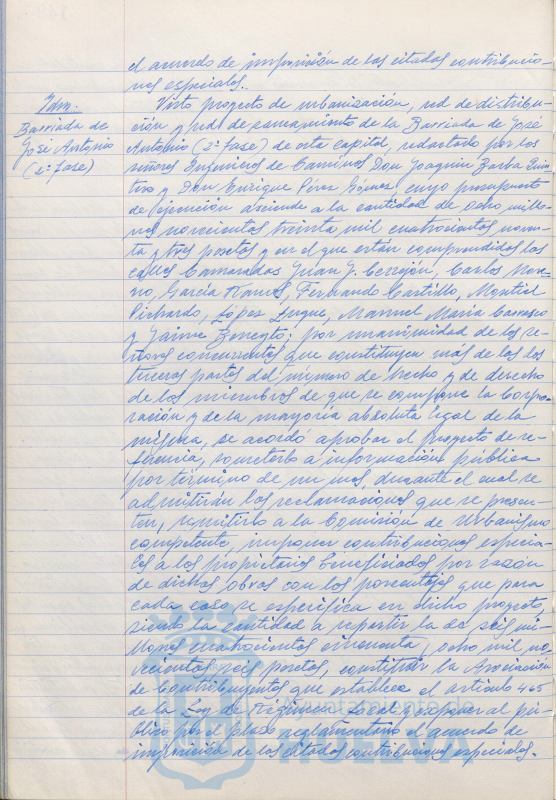 el acuerdo de imposición de las citadas contribucio-
nes especiales.
Idm.
Barriada de
José Antonio
(2ª fase)
Visto proyecto de urbanización, red de distribu-
ción y red de saneamiento de la Barriada de José
Antonio (2ª fase) de esta capital, redactado por los
señores Ingenieros de Caminos Don Joaquín Barba Quin-
tero y Don Enrique Pérez Gómez, cuyo presupuesto
de ejecución asciende a la cantidad de ocho millo-
nes novecientas treinta mil cuatrocientas noven-
ta y tres pesetas y en el que están comprendidas las
calles Camaradas Juan J. Cerrejón, Carlos More-
no, García Ramos, Fernando Castillo, Montiel
Pichardo, López Luque, Manuel María
y Jaime; por unanimidad de los se-
ñores concurrentes que constituyen más de las dos
terceras partes del número de hecho y de derecho
de los miembros de que se compone la Corpo-
ración y de la mayoría absoluta legal de la
misma, se acordó aprobar el proyecto de re-
ferencia, someterlo a información pública
por término de un mes, durante el cual se
admitirán las reclamaciones que se presen-
ten, remitirlo a la Comisión de Urbanismo
competente, imponer contribuciones especia-
les a los propietarios beneficiados por razón
de dichas obras con los porcentajes que para
cada caso se especifica en dicho proyecto,
siendo la cantidad a repartir la de seis mi-
llones cuatrocientas cincuenta y ocho mil no-
vecientas seis pesetas, constituir la Asociación
de Contribuyentes que establece el artículo 465
de la Ley de Régimen Local y exponer al pú-
blico por el plazo reglamentario el acuerdo de
imposición de las citadas contribuciones especiales.
Ayuntamiento de
HUELVA